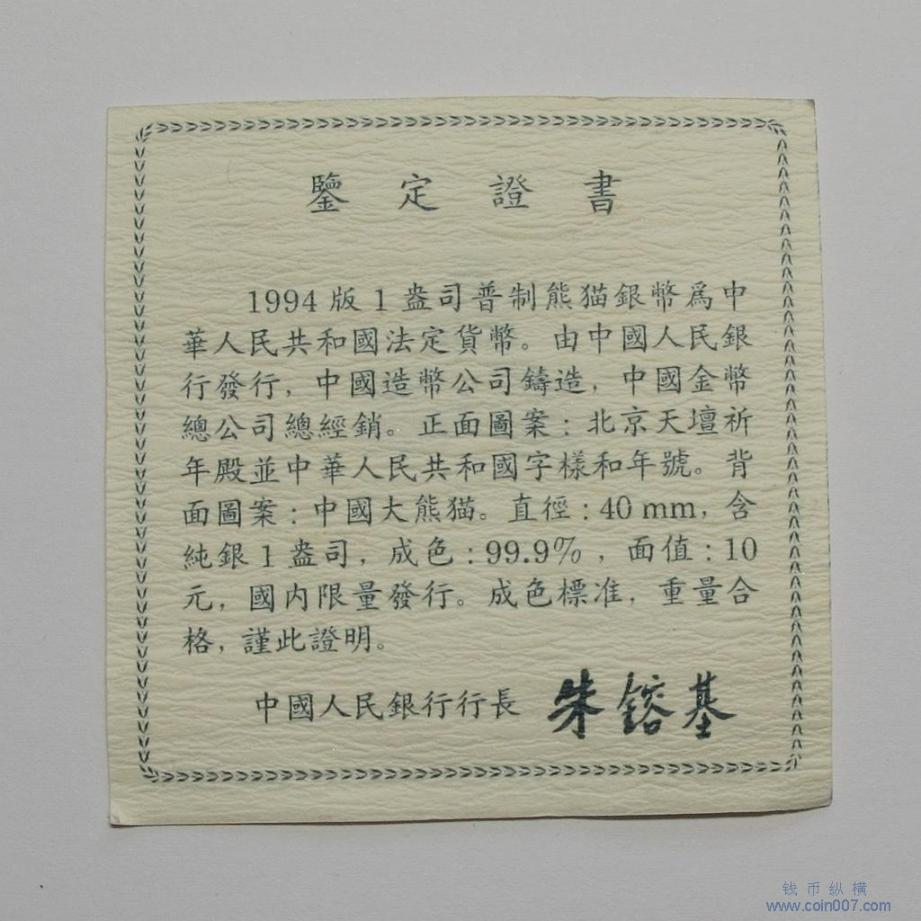 鑒定證書
1994版1盎司普制熊猫銀幣爲中
華人民共和國法定貨幣。由中國人民銀
行發行，中國造幣公司鑄造，中國金幣
總公司總經銷。正面圖案：北京天壇祈
年殿並中華人民共和國字樣和年號。背
面圖案：中國大熊猫。直徑：40 mm，含
純銀1盎司，成色：99.9%，面值：10
元，國内限量發行。成色標准，重量合
格，謹此證明。
中國人民銀行行長 朱鎔基
钱币纵横
www.coin007.com